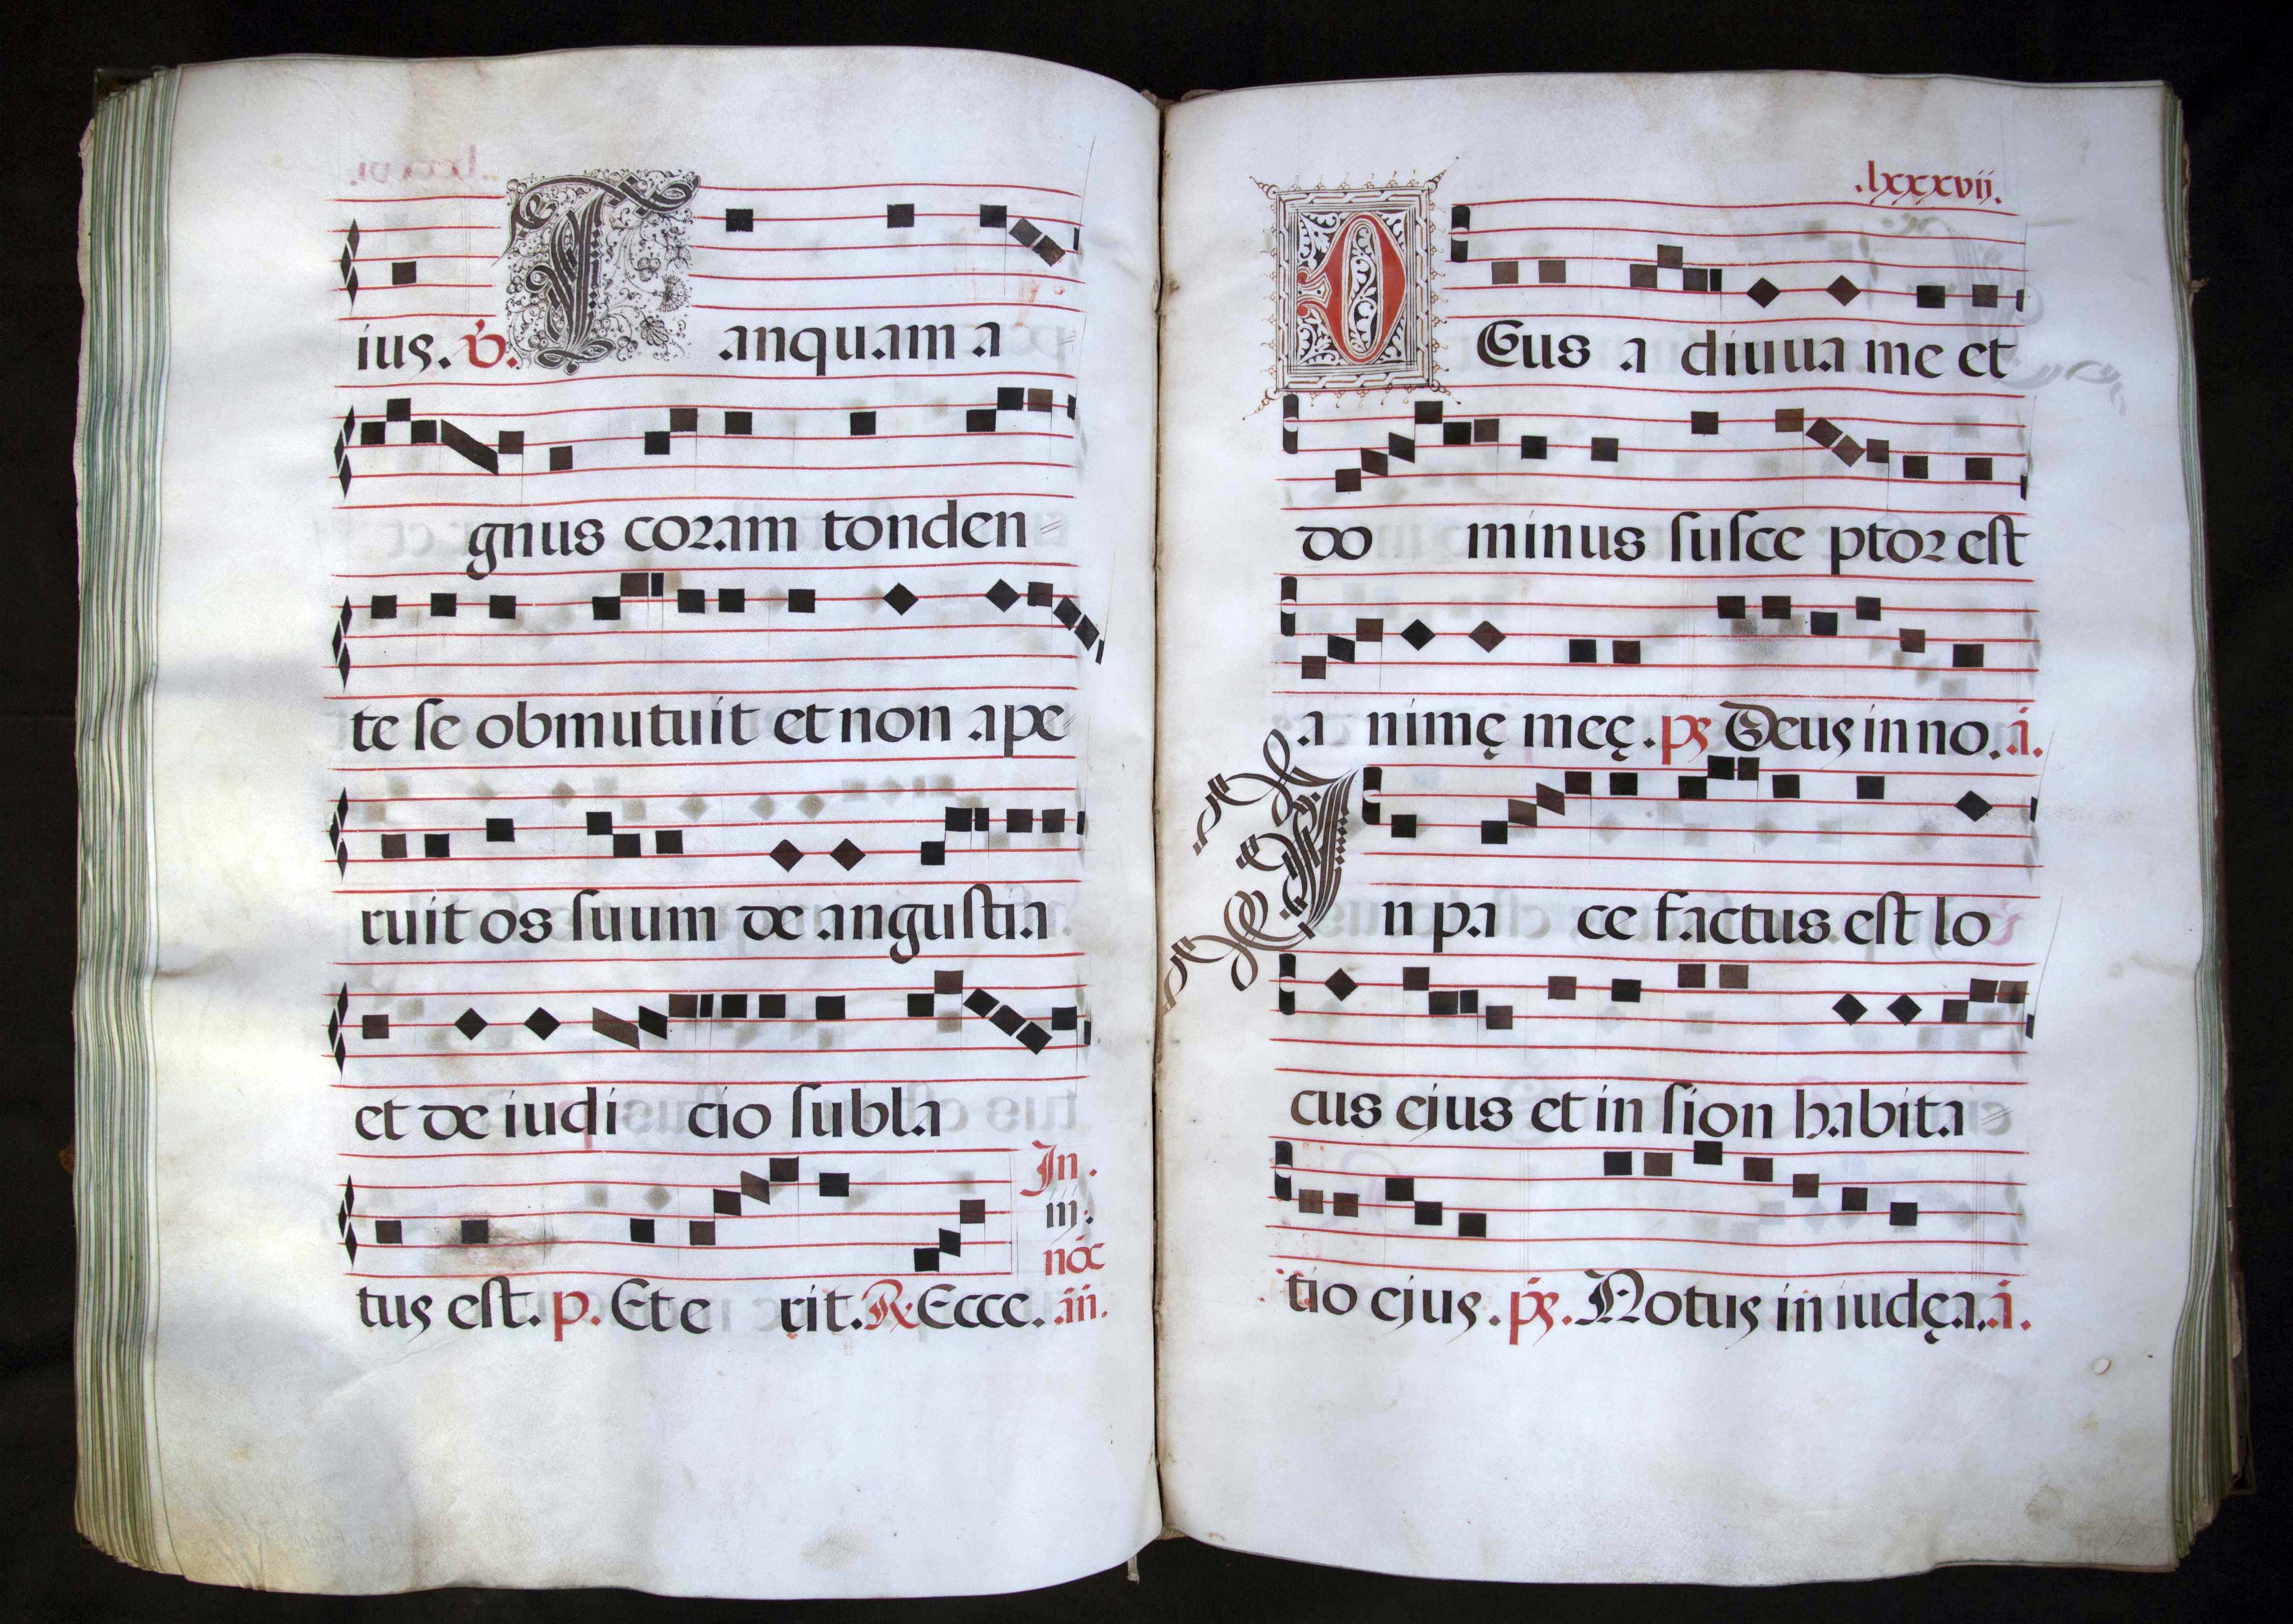 ius. V. Tanquam a
gnus coram tonden
te se obmutuit et non ape
ruit os suum de angustia
et de iudi cio subla
In.
iij.
noc
tus est. p. Et e rit. R. Ecce. añ.
.lxxxvij.
DEus a diuua me et
do minus susce ptor est
a nimę meę. ps Deus in no. a.
In pa ce factus est lo
cus ejus et in sion habita
tio ejus. ps. Notus in iudęa. a.